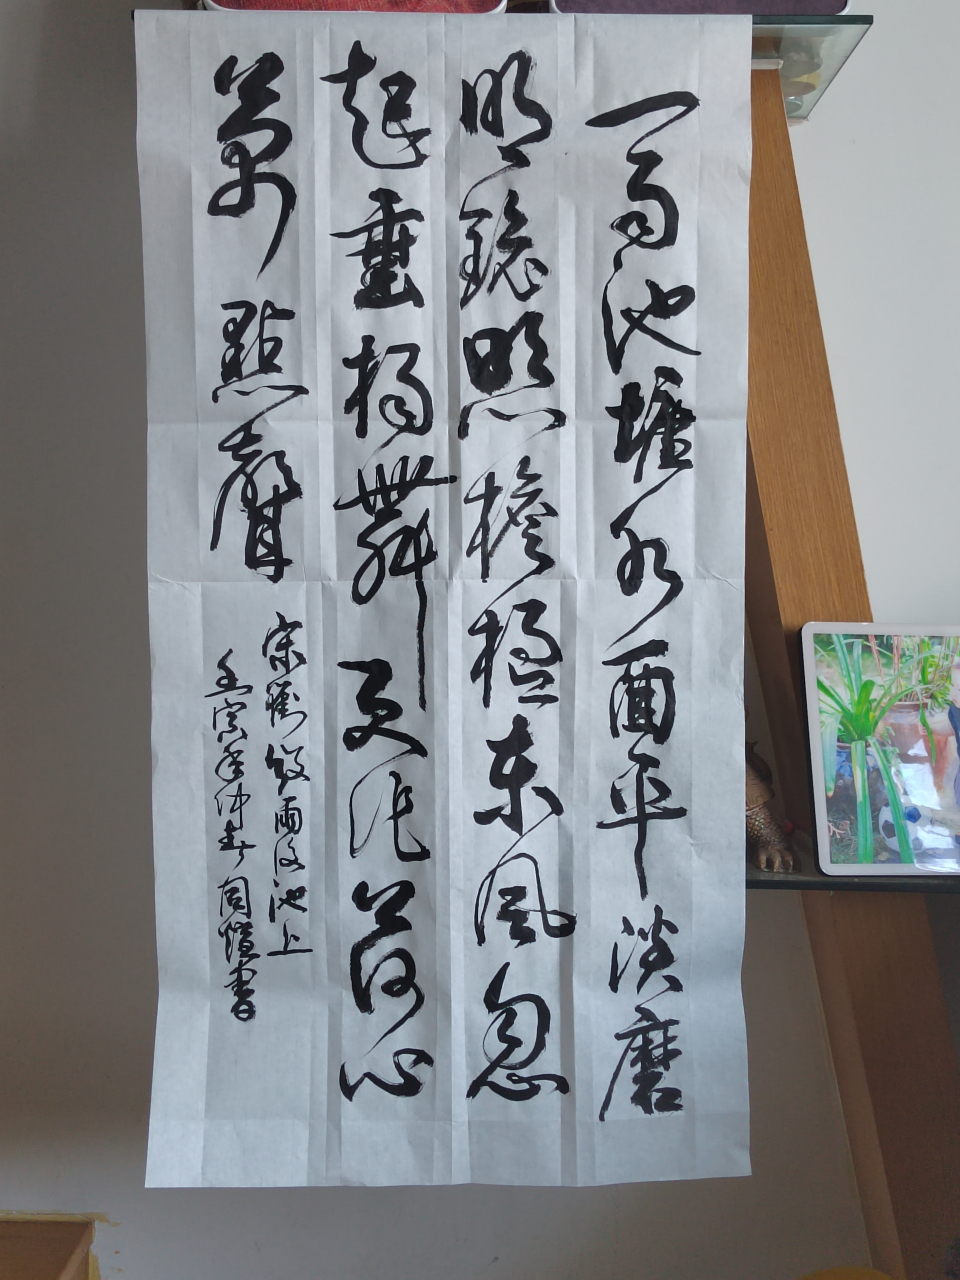 一雨池塘水面平淡磨
明鏡照檐楹東風忽
起垂楊舞更作荷心
萬點聲
宋劉攽雨後池上
壬寅年仲春書